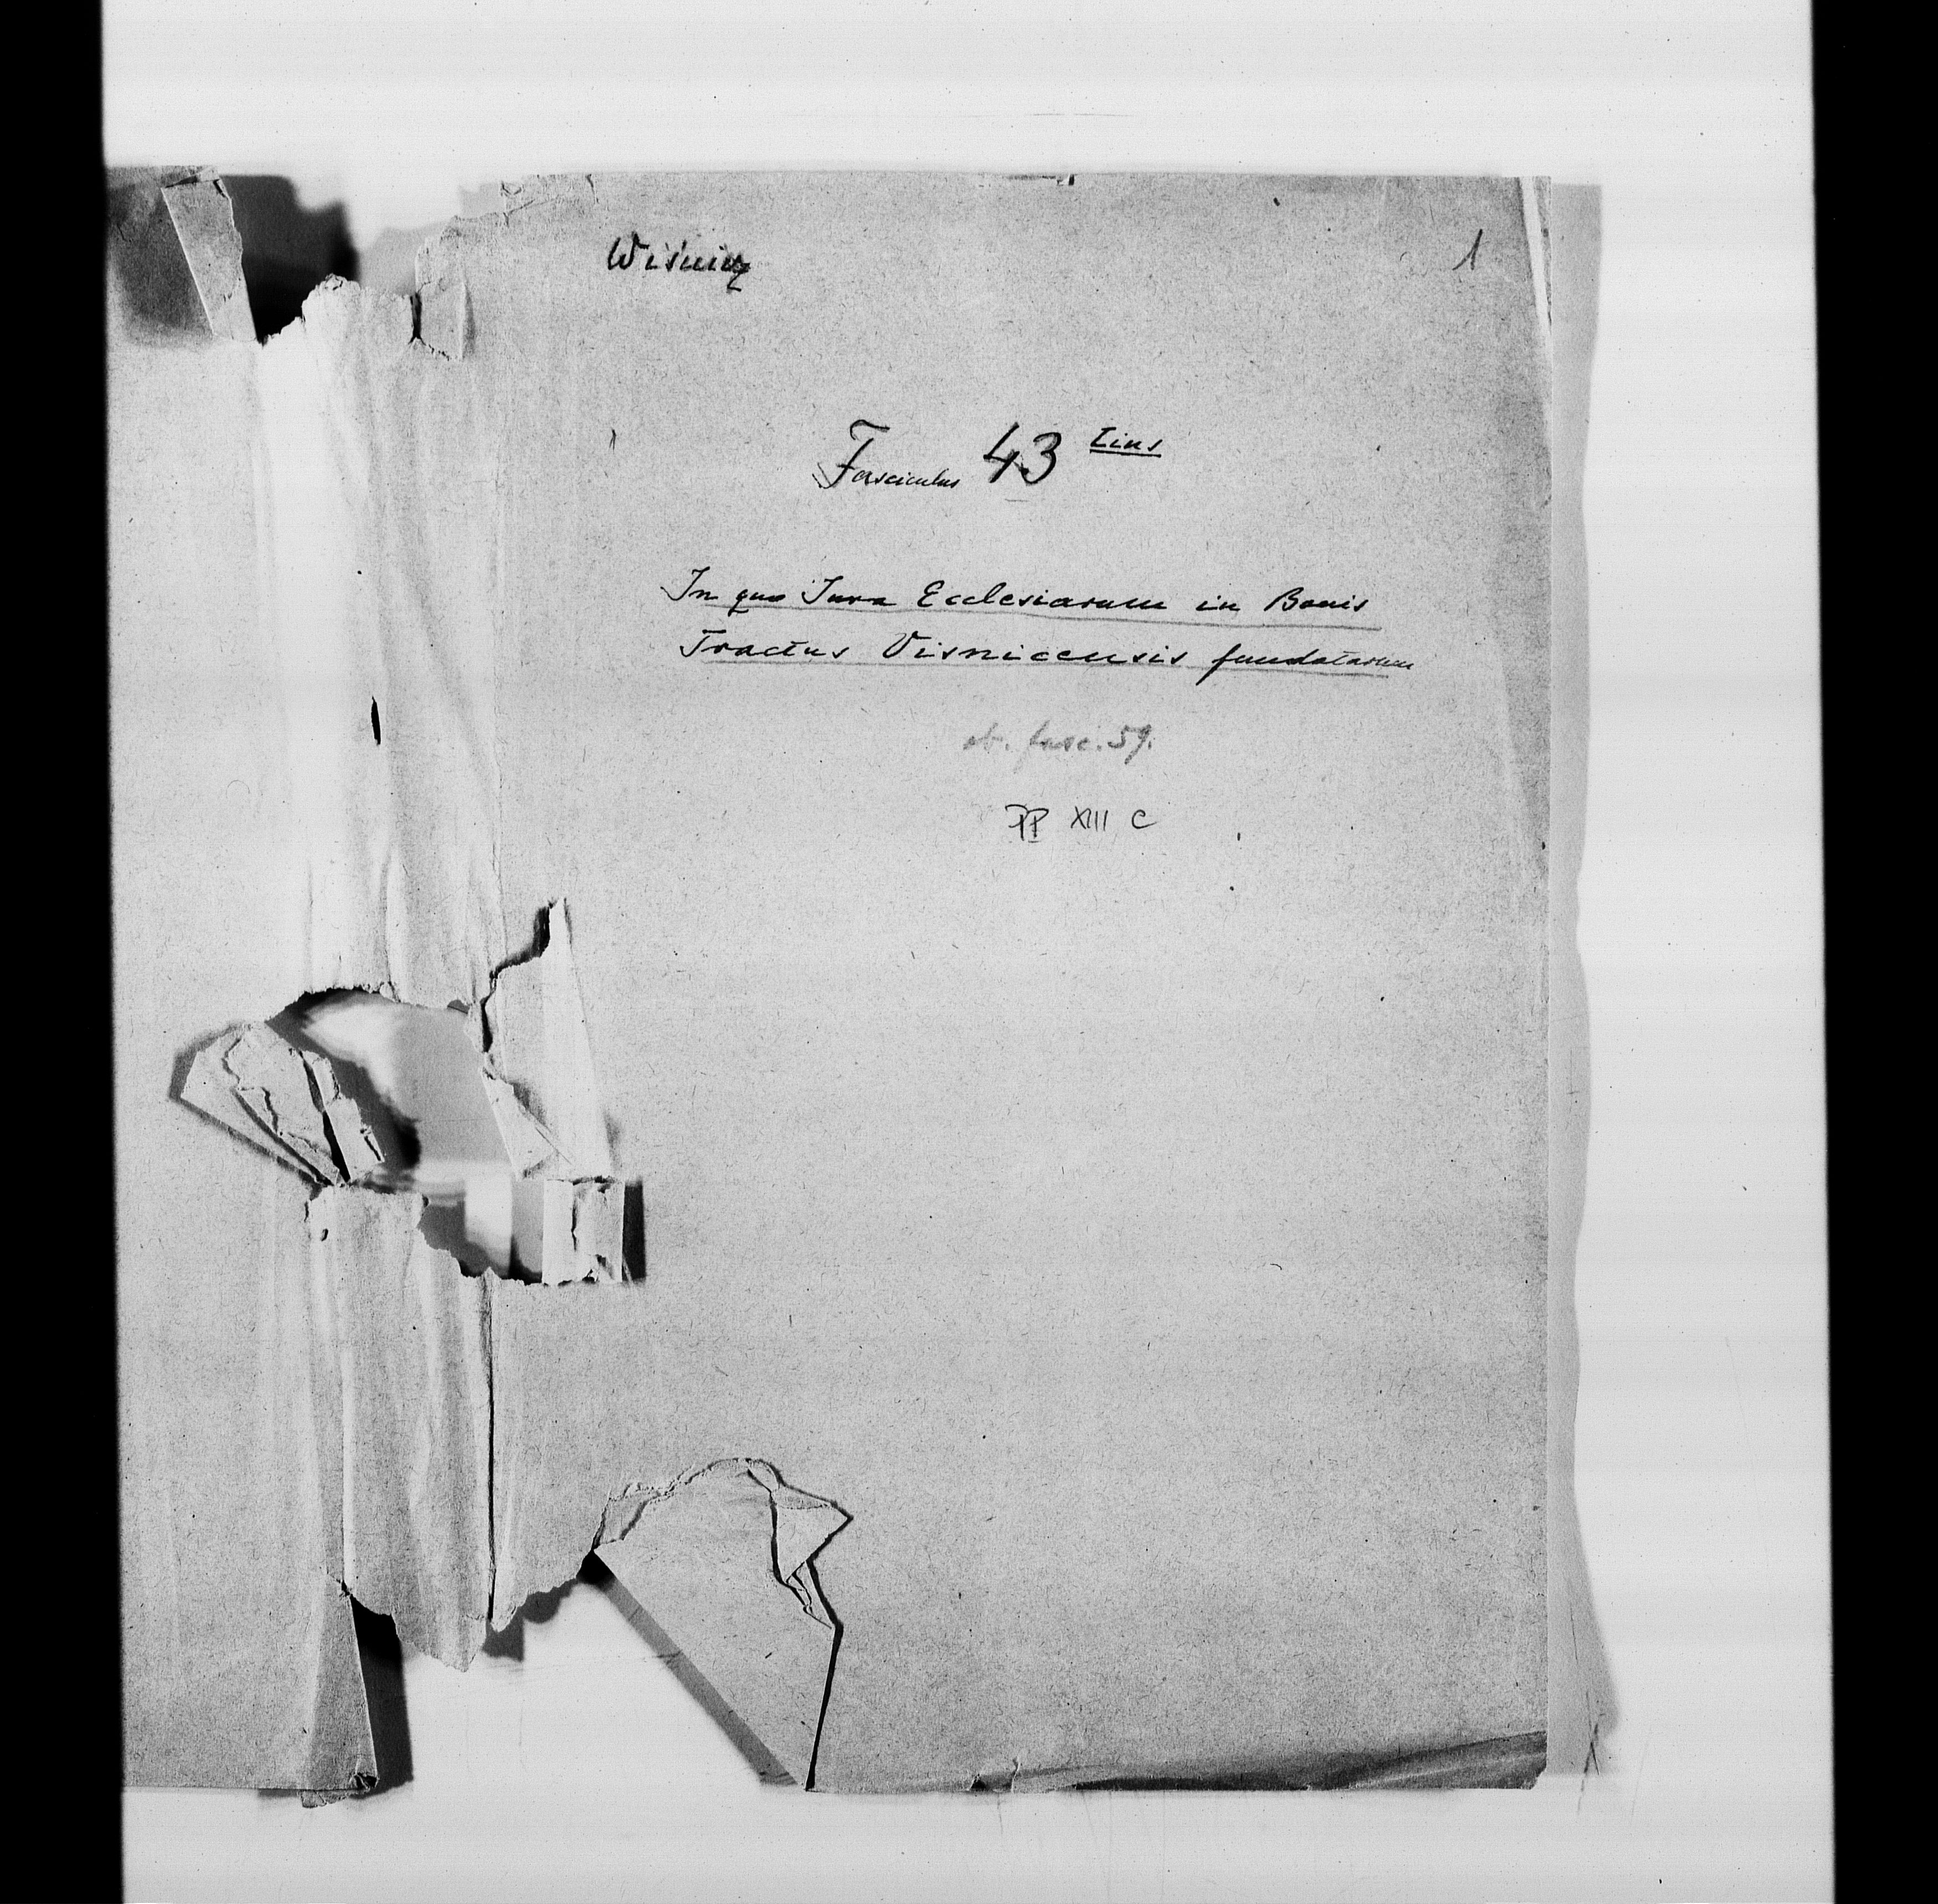 Wiśnicz
1
Fasciculus 43 tius
In quo Jura Ecclesiarum in Bonis
Tractus Visnicensis fundatarum
ob. fasc. 59.
PP XIII C